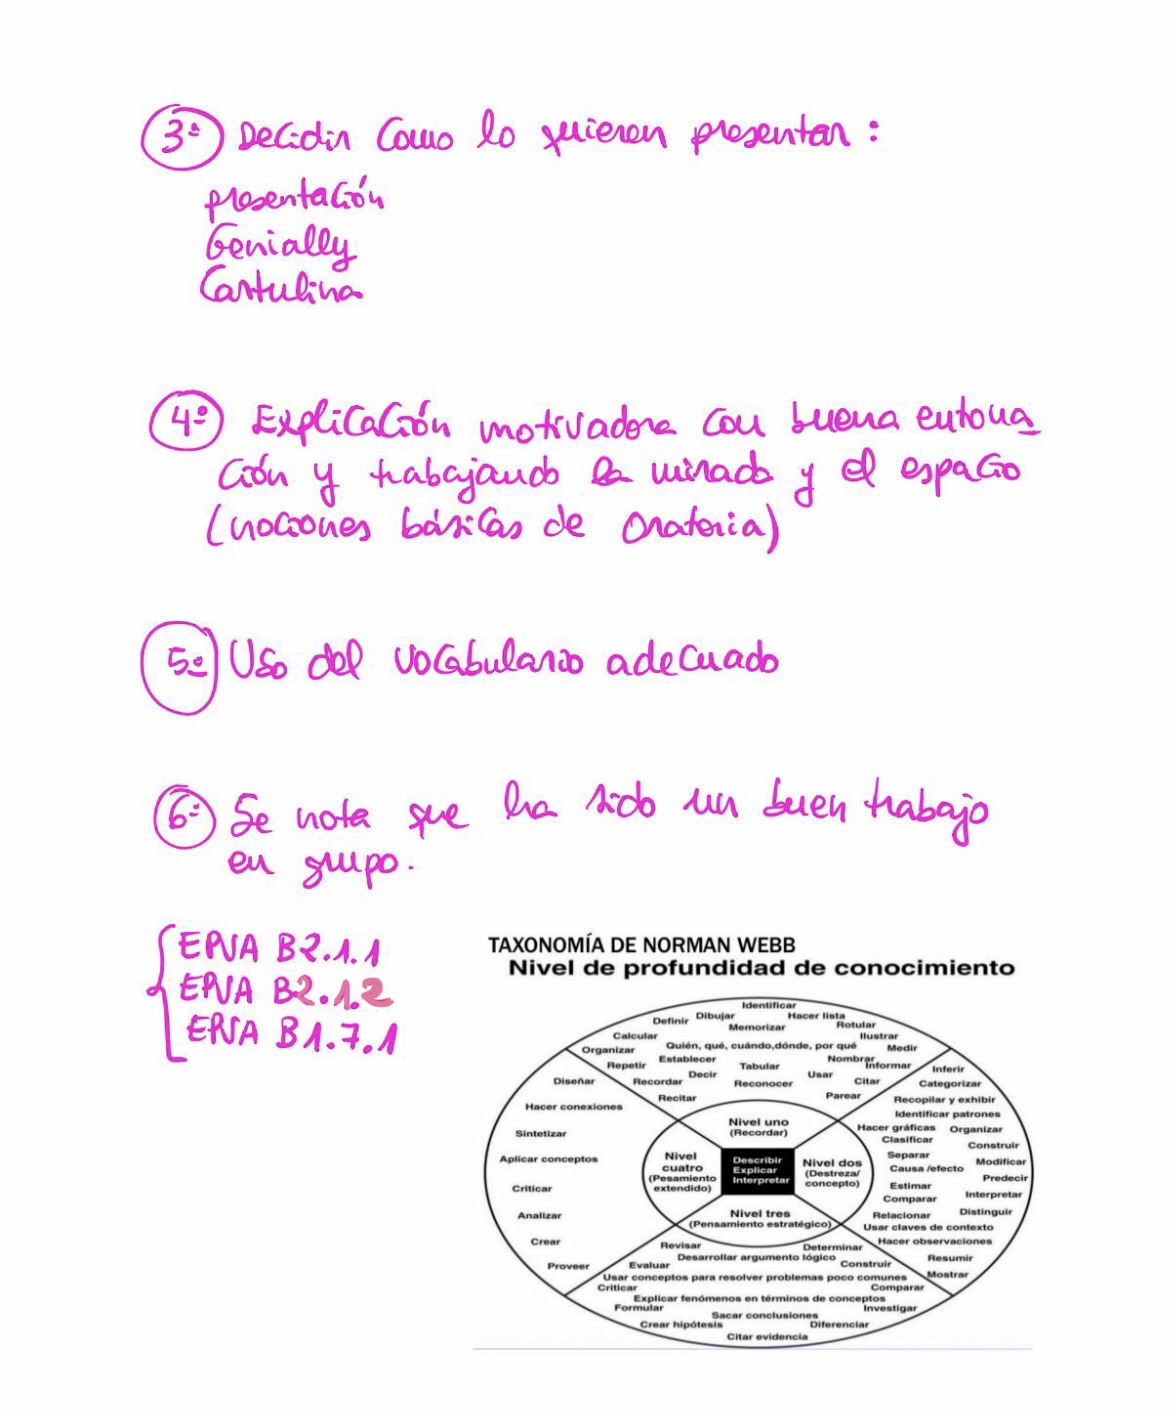 3º Decidir como lo quieren presentar :
presentación
Genially
Cartulina
4º Explicación motivadora con buena entona
ción y trabajando la mirada y el espacio
(nociones básicas de oratoria)
5º Uso del vocabulario adecuado
6º Se nota que ha sido un buen trabajo
en grupo.
EPVA B2.1.1
EPVA B2.1.2
EPVA B1.7.1
TAXONOMÍA DE NORMAN WEBB
Nivel de profundidad de conocimiento
Identificar
Definir Dibujar Hacer lista
Memorizar Rotular
Calcular Ilustrar
Organizar Quién, qué, cuándo,dónde, por qué Medir
Repetir Establecer Tabular Nombrar Informar
Recordar Decir Reconocer Usar Citar
Recitar Parear
Nivel uno
(Recordar)
Inferir
Categorizar
Recopilar y exhibir
Identificar patrones
Hacer gráficas Organizar
Clasificar Construir
Separar Modificar
Causa /efecto Predecir
Estimar Interpretar
Comparar
Relacionar Distinguir
Usar claves de contexto
Hacer observaciones
Resumir
Mostrar
Nivel dos
(Destreza/
concepto)
Describir
Explicar
Interpretar
Nivel
cuatro
(Pesamiento
extendido)
Diseñar
Hacer conexiones
Sintetizar
Aplicar conceptos
Criticar
Analizar
Crear
Proveer
Nivel tres
(Pensamiento estratégico)
Revisar Determinar
Desarrollar argumento lógico
Evaluar Construir
Usar conceptos para resolver problemas poco comunes
Criticar Comparar
Explicar fenómenos en términos de conceptos
Formular Investigar
Sacar conclusiones
Crear hipótesis Diferenciar
Citar evidencia